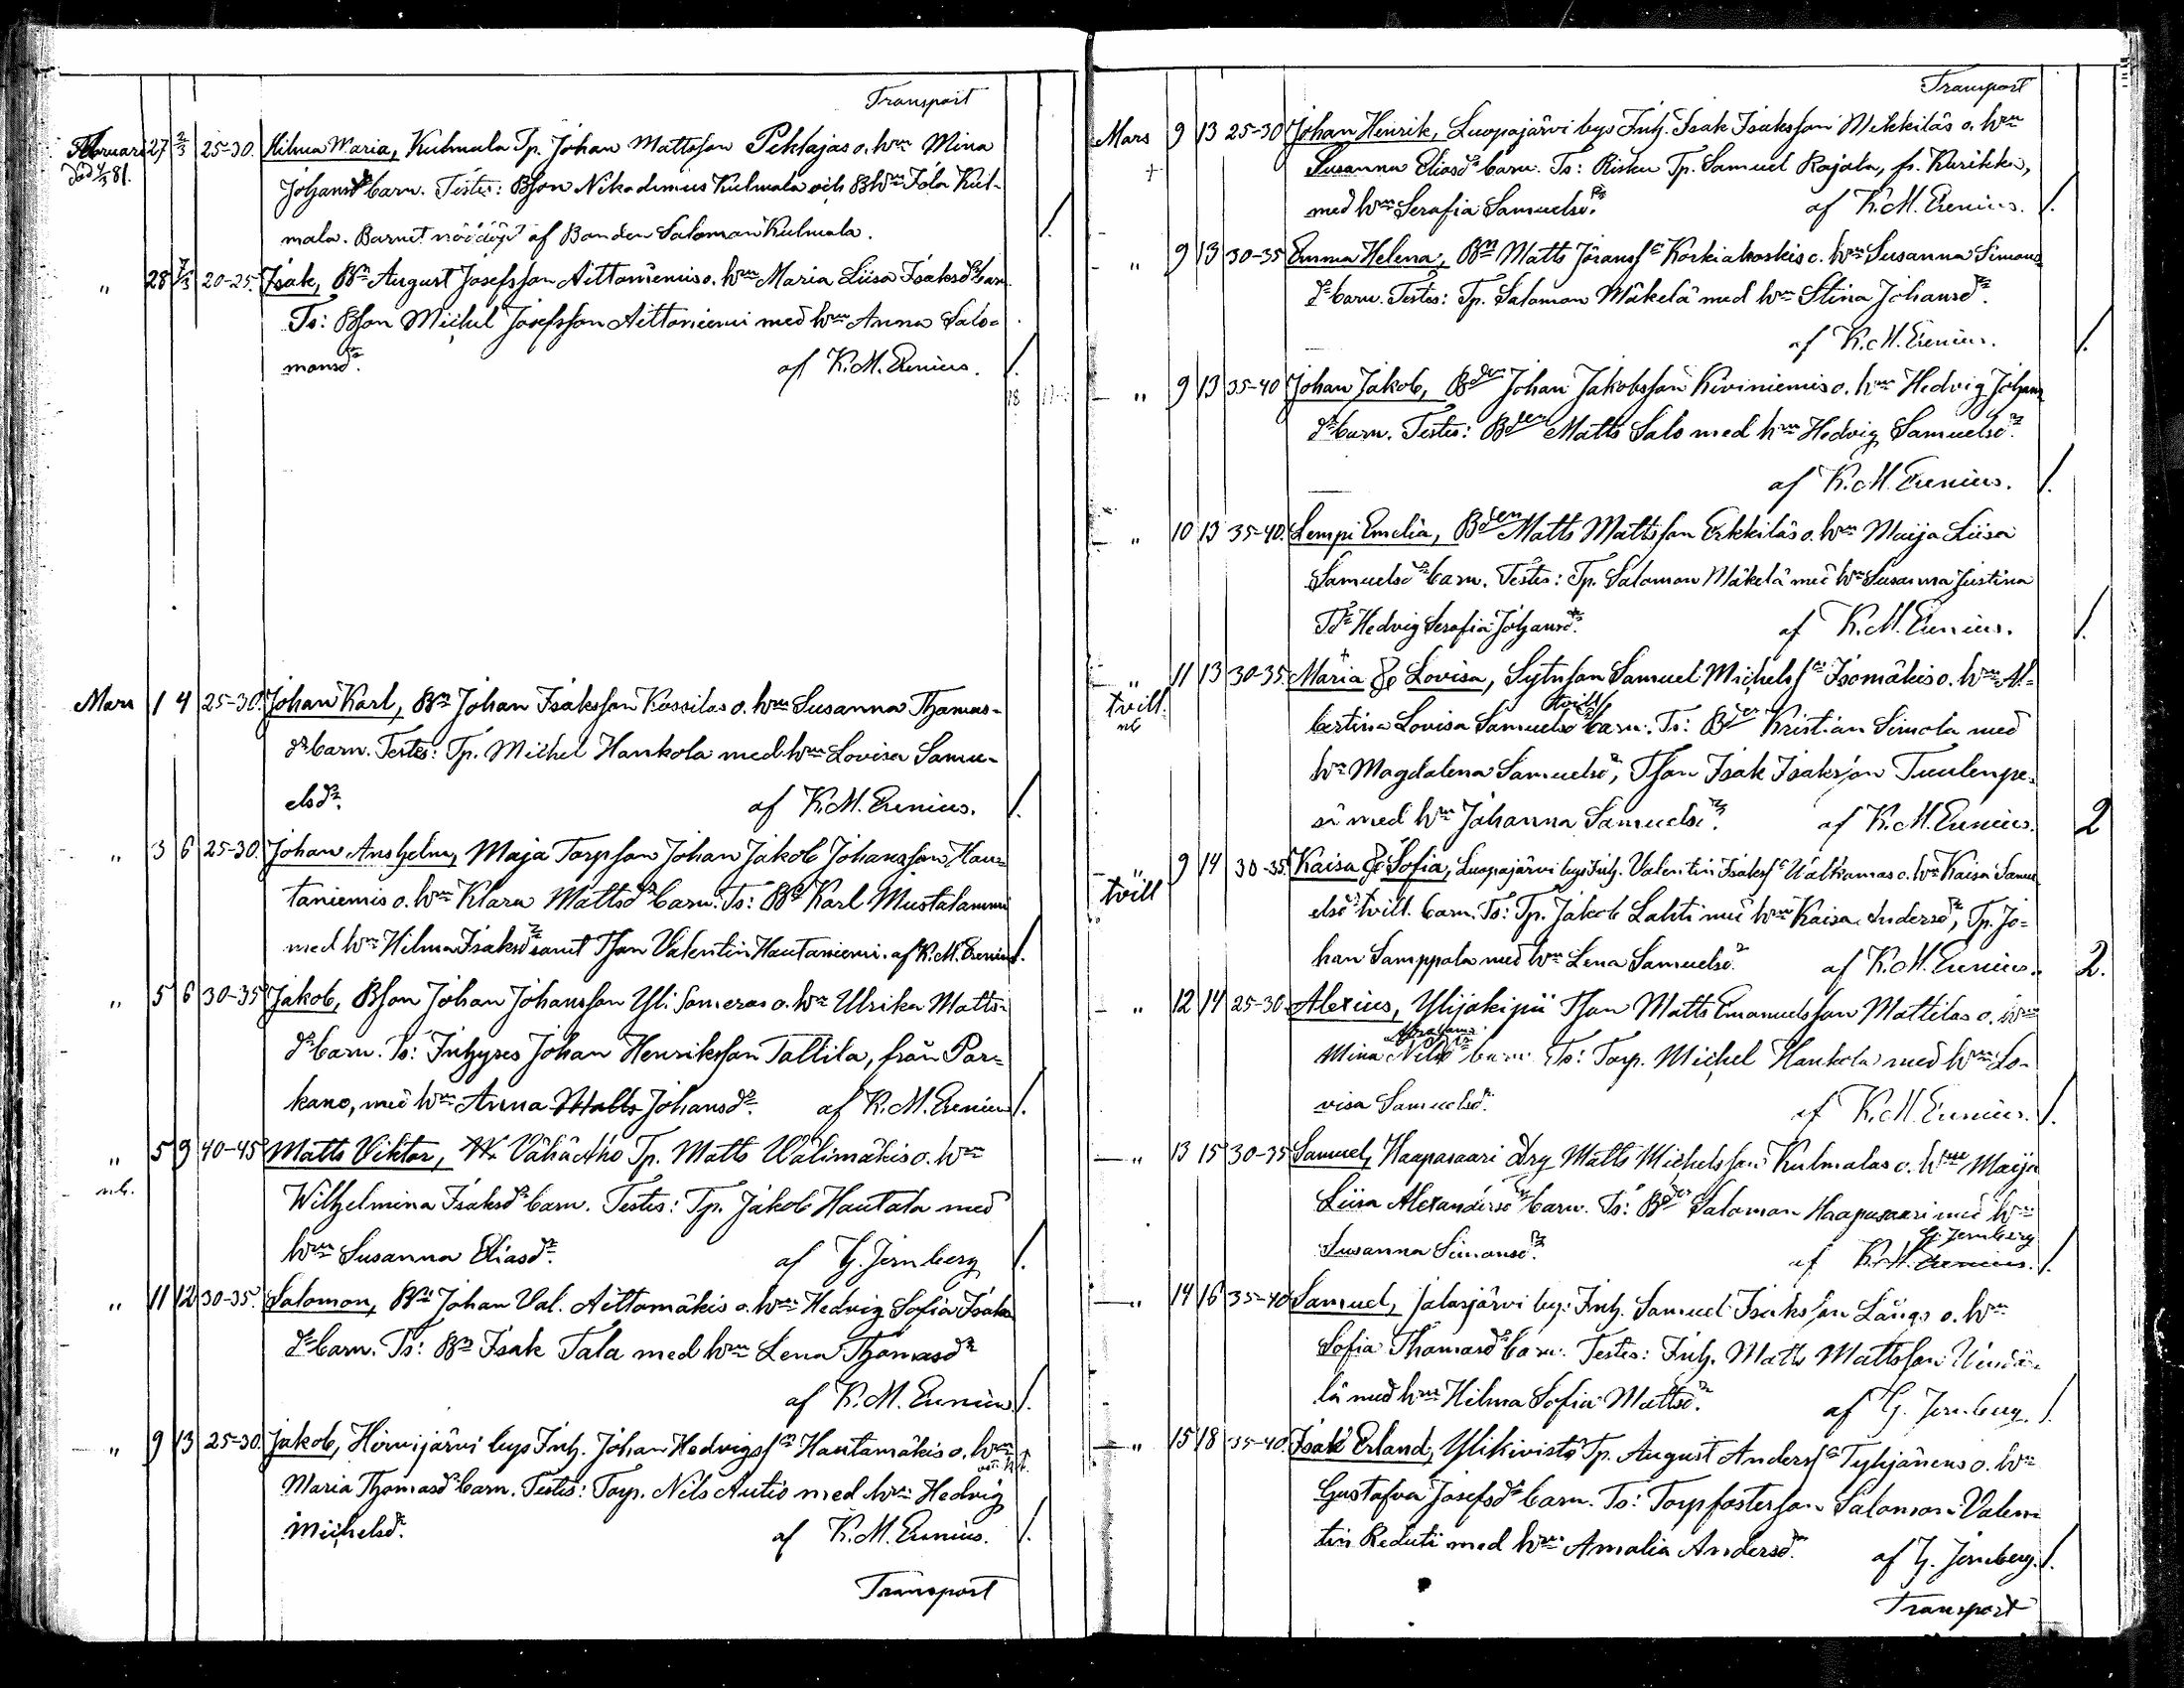 Transport
Februari 27 2/3 25-30. Hilma Maria, Kulmala Tp. Johan Mattsson Pehlajas o. hm Mina
död 4/3 81.
Johansdr barn. Testes: Bson Nikodemus Kulmala och Bhm Kul-
mala. Barnet nöddöpt af Bonden Salomon Kulmala.
" 28 7/3 20-25. Isak, Bn August Josefsson Aittoniemis o. hm Maria Liisa Isaksdr barn.
Ts: Bson Michel Josefsson Aittoniemi med hm Anna Salo-
monsdr. af K. M. Erenius. 1.
18
Mars 1 4 25-30. Johan Karl, Bn Johan Isaksson Kossilas o. hm Susanna Thomas-
dr barn. Testes: Tp. Michel Hankola med hm Lovisa Samu-
elsdr. af K. M. Erenius. 1.
" 3 6 25-30. Johan Anshelm, Maja Torpson Johan Jakob Johansson Hau-
taniemis o. hm Klara Mattsdr barn. Ts: Bn Karl Mustalammi
med hm Hilma Isaksdr samt Tson Valentin Hautaniemi. af K. M. Erenius 1.
" 5 6 30-35 Jakob, Bson Johan Johansson Yli Someros o. hm Ulrika Matts-
dr barn. Ts: Inhyses Johan Henriksson Tallila, från Par-
kano, med hm Anna Matts Johansdr. af K. M. Erenius 1.
" 5 9 40-45 Matts Viktor, Vähä Aho Tp. Matts Wälimäkis o. hm
nb.
Wilhelmina Isaksdr barn. Testes: Tp. Jakob Hautala med
hm Susanna Eliasdr. af G. Jernberg 1.
" 11 12 30-35. Salomon, Bn Johan Val. Aittomäkis o. hm Hedvig Sofia Isaks
dr barn. Ts: Bn Isak Tala med hm Lena Thomasdr
af K. M. Erenius 1.
" 9 13 25-30. Jakob, Hirvijärvi bys Inh. Johan Hedvigssn Hautamäkis o. hm
Maria Thomasdr barn. Testes: Torp. Nils Autio med hm Hedvig
Michelsdr. af K. M. Erenius. 1.
Transport
Transport
Mars 9 13 25-30 Johan Henrik, Luopajärvi bys Inh. Isak Isaksson Mikkiläs o. hm
+ Susanna Eliasdr barn. Ts: Risku Tp. Samuel Rajala, fr. Kurikka,
med hm Serafia Samuelsdr. af K. M. Erenius. 1.
" 9 13 30-35 Emma Helena, Bn Matts Göranss Koskiakoskis o. hm Susanna Simons
dr barn. Testes: Tp. Salomon Mäkelä med hm Stina Johansdr.
af K. M. Erenius. 1.
" 9 13 35-40 Johan Jakob, Bden Johan Jakobsson Kiviniemis o. hm Hedvig Johans
dr barn. Testes: Bden Matts Salo med hm Hedvig Samuelsdr.
af K. M. Erenius. 1.
" 10 13 35-40. Lempi Emelia, Bden Matts Mattsson Erkkiläs o. hm Maija Liisa
Samuelsdr barn. Testes: Tp. Salomon Mäkelä med hm Susanna Justina
Tdr Hedvig Serafia Johansdr. af K. M. Erenius. 1.
+
" 11 13 30-35 Maria & Lovisa, Sytnson Samuel Michelss Isomäkis o. hm Al-
tvill. nb
tvill
bertina Lovisa Samuelsdr barn. Ts: Bden Kristian Simola med
hm Magdalena Samuelsdr, Tson Isak Isaksson Tuulenpe-
sä med hm Johanna Samuelsdr. af K. M. Erenius. 2
" 9 14 30-35. Kaisa & Sofia, Luopajärvi bys Inh. Valentin Isakss Wälkamas o. hm Kaisa Samu
tvill
elsdr tvill. barn. Ts: Tp. Jakob Lahti med hm Kaisa Andersdr, Tp. Jo-
han Samppala med hm Lena Samuelsdr. af K. M. Erenius. 2.
" 12 14 25-30. Alexius, Ylijokipii Tson Matts Emanuelsson Mattilas o. hm
Abrahams
Mina Nilsdr barn Ts: Torp. Michel Hankola med hm Lo-
visa Samuelsdr. af K. M. Erenius. 1.
" 13 15 30-35 Samuel, Haapasaari Drg Matts Michelsson Kulmalas o. hm Maija
Liisa Alexandersdr barn. Ts: Bden Salomon Haapasaari med hm
G. Jernberg
Susanna Simonsdr. af K. M. Erenius. 1.
" 14 16 35-40 Samuel, Jalasjärvi by: Inh. Samuel Isaksson Långs o. hm
Sofia Thomasdr barn. Testes: Inh. Matts Mattsson
lä med hm Hilma Sofia Mattsdr. af G. Jernberg. 1.
" 15 18 35-40. Isak Erland, Ylikivistö Tp. August Anderss Tyhjänens o. hm
Gustafva Josefsdr barn. Ts: Torpfosterson Salomon Valen-
tin Reduti med hm Amalia Andersdr. af G. Jernberg. 1.
Transport